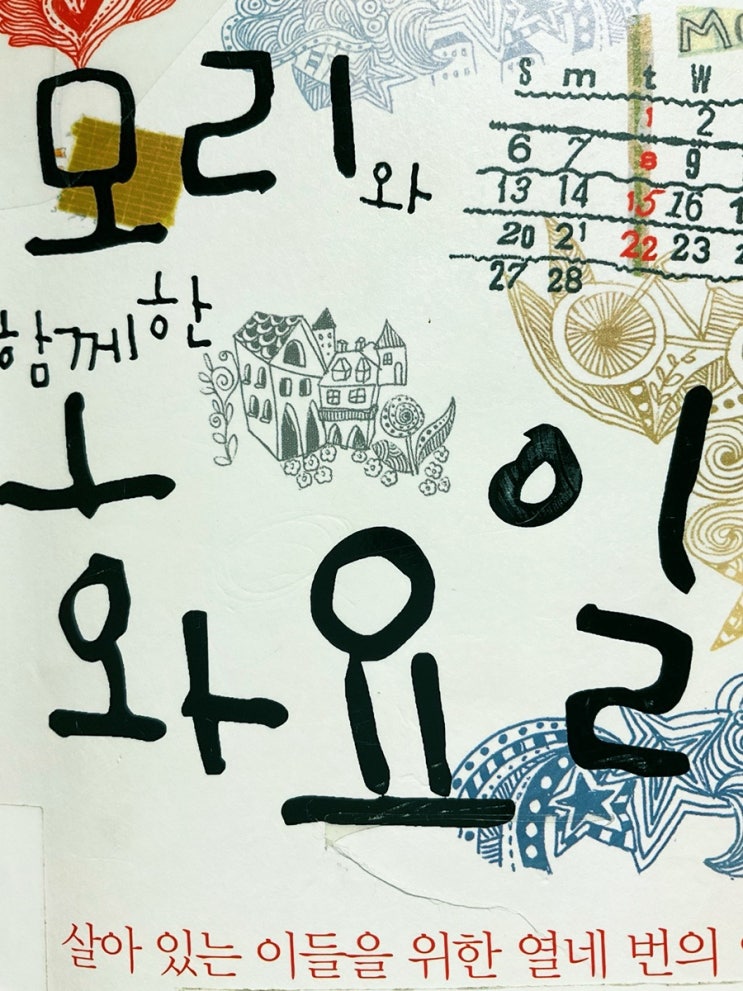 모리와
함께한
화요일
s m t w
1 2
6 7 8 9
13 14 15 16
20 21 22 23
27 28
살아 있는 이들을 위한 열네 번의